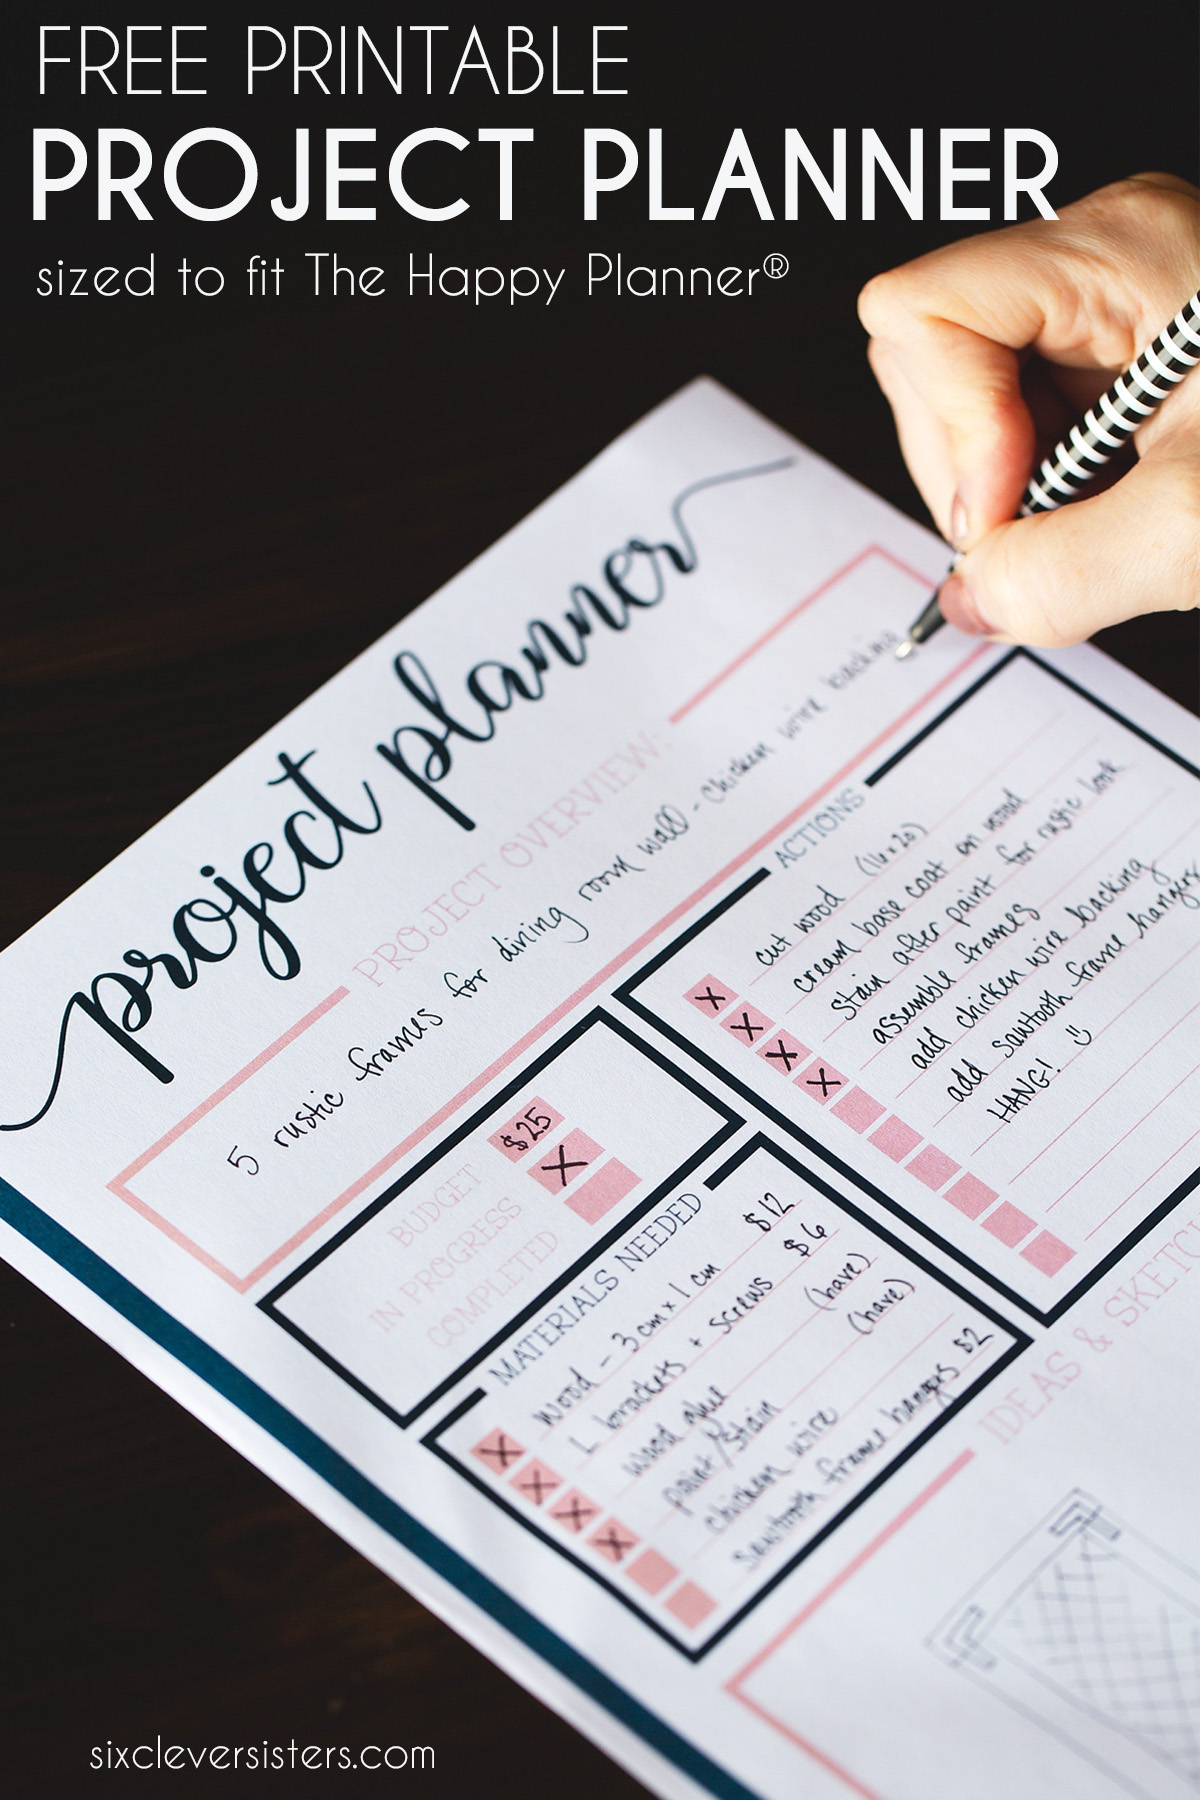 FREE PRINTABLE
PROJECT PLANNER
sized to fit The Happy Planner®
project planner
PROJECT OVERVIEW:
5 rustic frames for dining room wall - chicken wire backing
BUDGET
$25
IN PROGRESS
X
COMPLETED
ACTIONS
X cut wood (16x20)
X cream base coat on wood
X stain after paint for rustic look
X assemble frames
add chicken wire backing
add sawtooth frame hangers
HANG! ☺
MATERIALS NEEDED
X wood - 3cm x 1cm $12
X L brackets + screws $6
X wood glue (have)
X paint/stain (have)
chicken wire
sawtooth frame hangers $2
IDEAS & SKETC
sixcleversisters.com